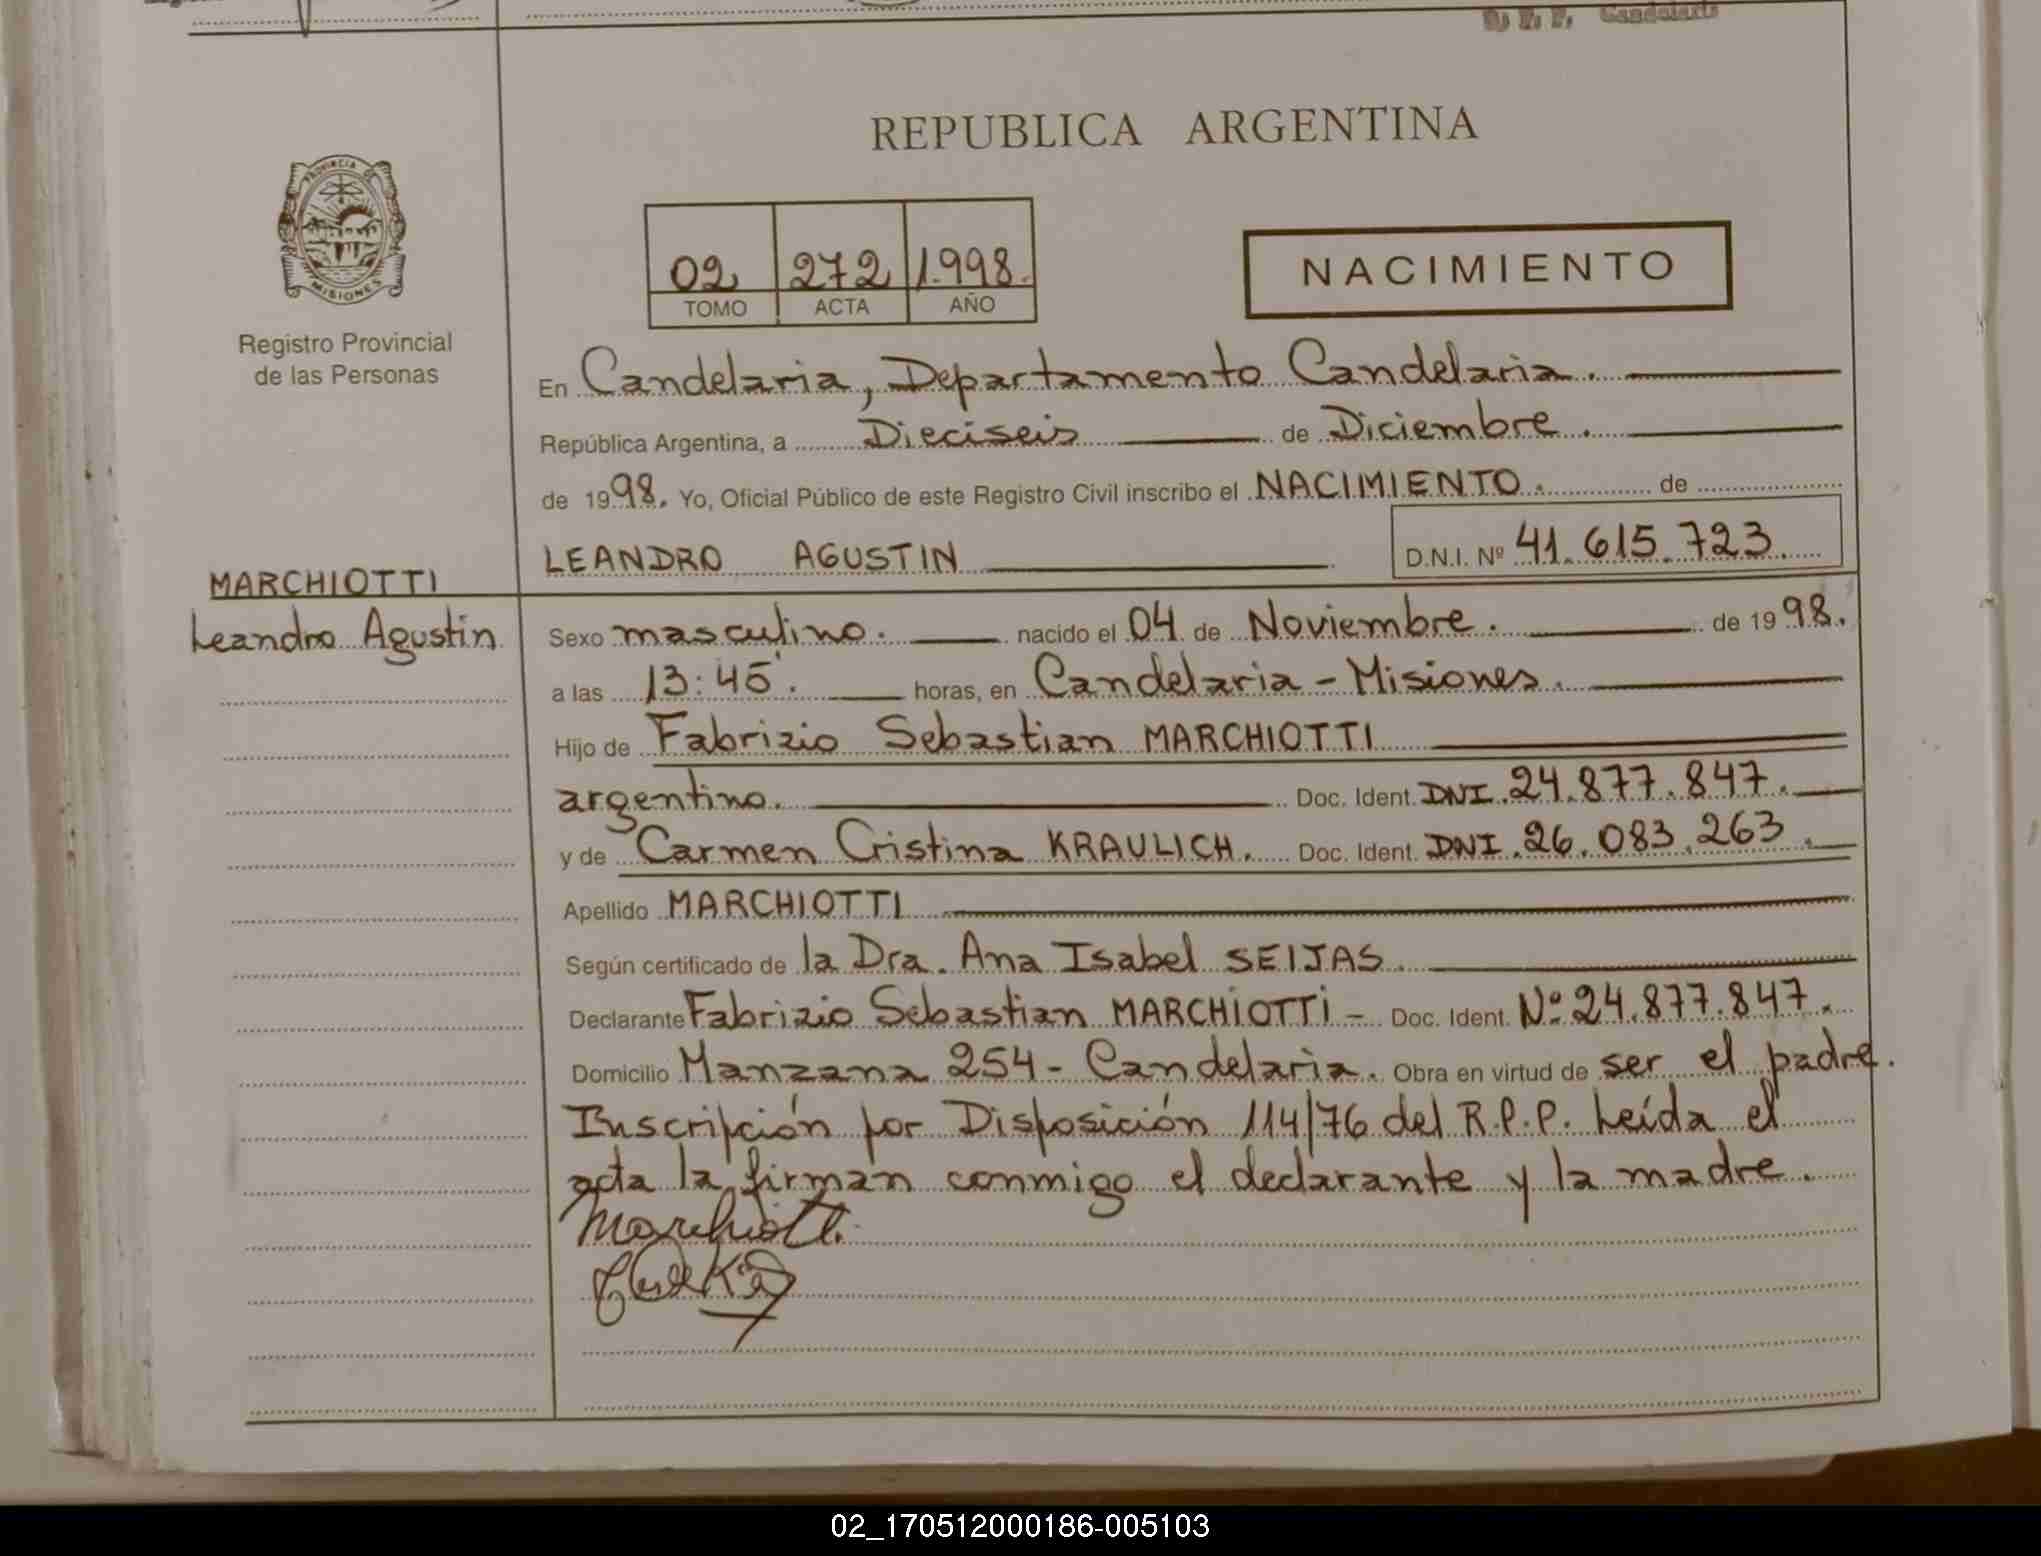 D. F. F. Candelaria
REPUBLICA ARGENTINA
PROVINCIA DE
MISIONES
Registro Provincial
de las Personas
02 272 1.998.
TOMO ACTA AÑO
NACIMIENTO
En Candelaria, Departamento Candelaria.
República Argentina, a Dieciseis de Diciembre.
de 1998. Yo, Oficial Público de este Registro Civil inscribo el NACIMIENTO. de
LEANDRO AGUSTIN D.N.I. Nº 41.615.723.
MARCHIOTTI
Leandro Agustin
Sexo masculino. nacido el 04 de Noviembre. de 1998.
a las 13:45'. horas, en Candelaria - Misiones.
Hijo de Fabrizio Sebastian MARCHIOTTI
argentino. Doc. Ident. DNI. 24.877.847.
y de Carmen Cristina KRAULICH. Doc. Ident. DNI. 26.083.263.
Apellido MARCHIOTTI
Según certificado de la Dra. Ana Isabel SEIJAS.
Declarante Fabrizio Sebastian MARCHIOTTI - Doc. Ident. Nº 24.877.847.
Domicilio Manzana 254 - Candelaria. Obra en virtud de ser el padre.
Inscripción por Disposición 114/76 del R.P.P. Leída el
acta la firman conmigo el declarante y la madre.
Marchiotti
02_170512000186-005103